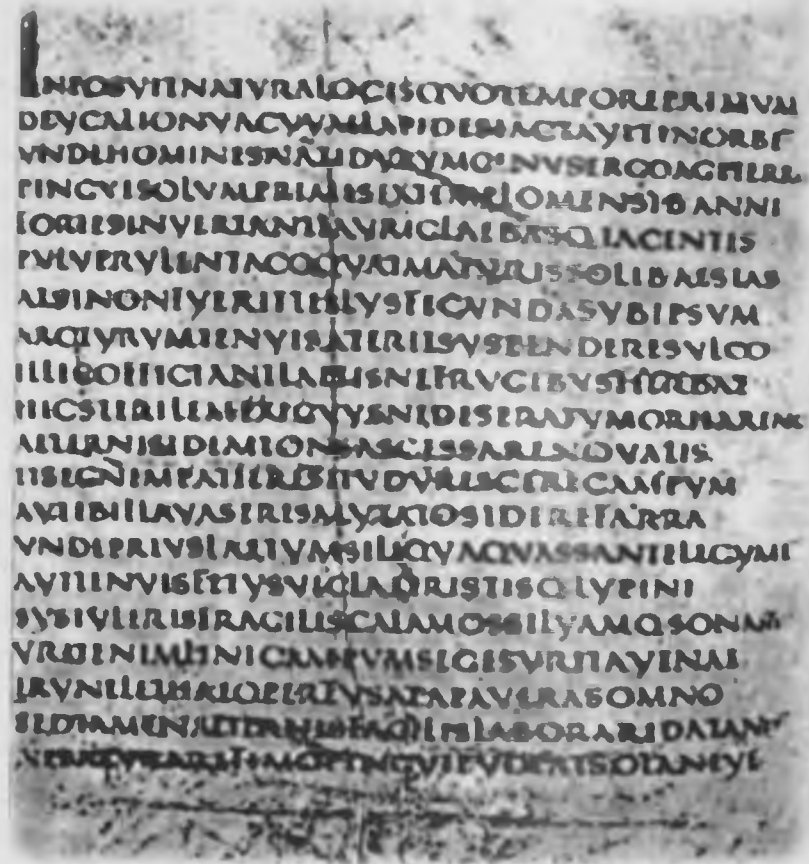 INPOSVITNATVRALOCISQVOTEMPOREPRIMVM
DEVCALIONVACVVMLAPIDESIACTAVITINORBE
VNDEHOMINESNATIDVRVMGENVSERGOAGETERRE
PINGVESOLVMPRIMISEXTEMPLOMENSIBANNI
FORTESINVERTANTTAVRIGLAEBASQIACENTIS
PVLVERVLENTACOQVATMATVRISSOLIBAESTAS
ATSINONFVERITTELLVSFECVNDASVBIPSVM
ARCTVRVMTENVISATERITSVSPENDERESVLCO
ILLICOFFICIANTLAETISNEFRVGIBVSHERBAE
HICSTERILEMEXIGVVSNEDESERATVMORHARENA
ALTERNISIDEMTONSASCESSARENOVALIS
ETSEGNEMPATIERESITVDVRESCERECAMPVM
AVTIBIFLAVASERISMVTATOSIDEREFARRA
VNDEPRIVSLAETVMSILIQVAQVASSANTELEGVME
AVTTENVISFETVSVICIAETRISTISQLVPINI
SVSTVLERISFRAGILISCALAMOSSILVAMQSONAN
VRITENIMLINICAMPVMSEGESVRITAVENAE
VRVNTLETHAEOPERFVSAPAPAVERASOMNO
SEDTAMENALTERNISFACILISLABORARIDATANT
NESATVRAREFIMOPINGVIPVDEATSOLANEVE